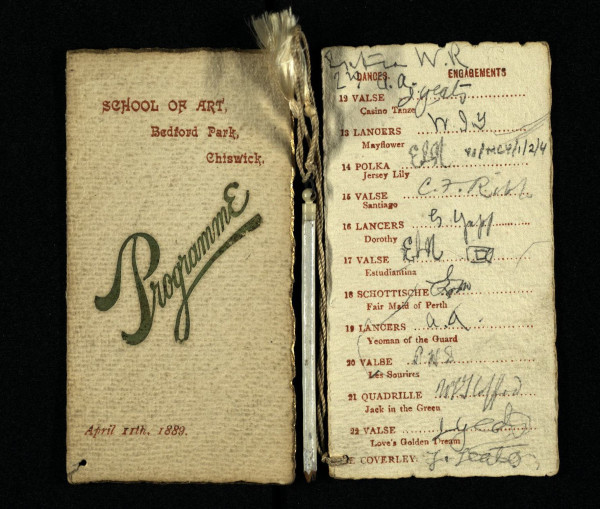 SCHOOL OF ART,
Bedford Park,
Chiswick.
Programme
April 11th, 1889.
W. R
DANCES ENGAGEMENTS
12 VALSE J Yeats
Casino Tanze
13 LANCERS W J Y
Mayflower
14 POLKA
Jersey Lily
15 VALSE C. F.
Santiago
16 LANCERS G Yapp
Dorothy
17 VALSE
Estudiantina
18 SCHOTTISCHE
Fair Maid of Perth
19 LANCERS a. a.
Yeoman of the Guard
20 VALSE
Les Sourires
21 QUADRILLE
Jack in the Green
22 VALSE
Love's Golden Dream
COVERLEY J. Yeats